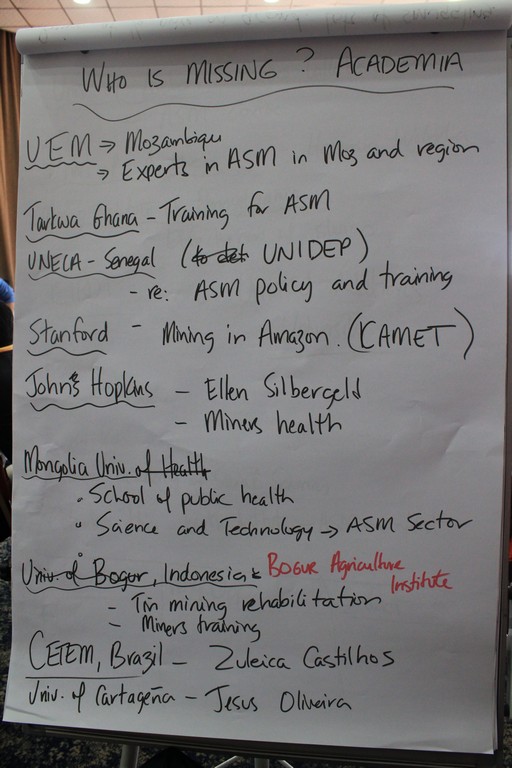 WHO IS MISSING? ACADEMIA
UEM → Mozambique
→ Experts in ASM in Moz and region
Tarkwa Ghana - Training for ASM
UNECA - Senegal (to det UNIDEP)
- re: ASM policy and training
Stanford - Mining in Amazon. (CAMET)
John's Hopkins - Ellen Silbergeld
- Miners health
Mongolia Univ. of Health
• School of public health
• Science and Technology → ASM Sector
Univ. of Bogor, Indonesia BOGUR Agriculture
Institute
- Tin mining rehabilitation
- Miners training
CETEM, Brazil - Zuleica Castilhos
Univ. of Cartageña - Jesus Oliveira